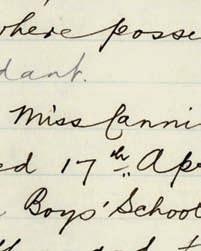 where posse
dant.
Miss Canni
ed 17th Apr
Boys' School